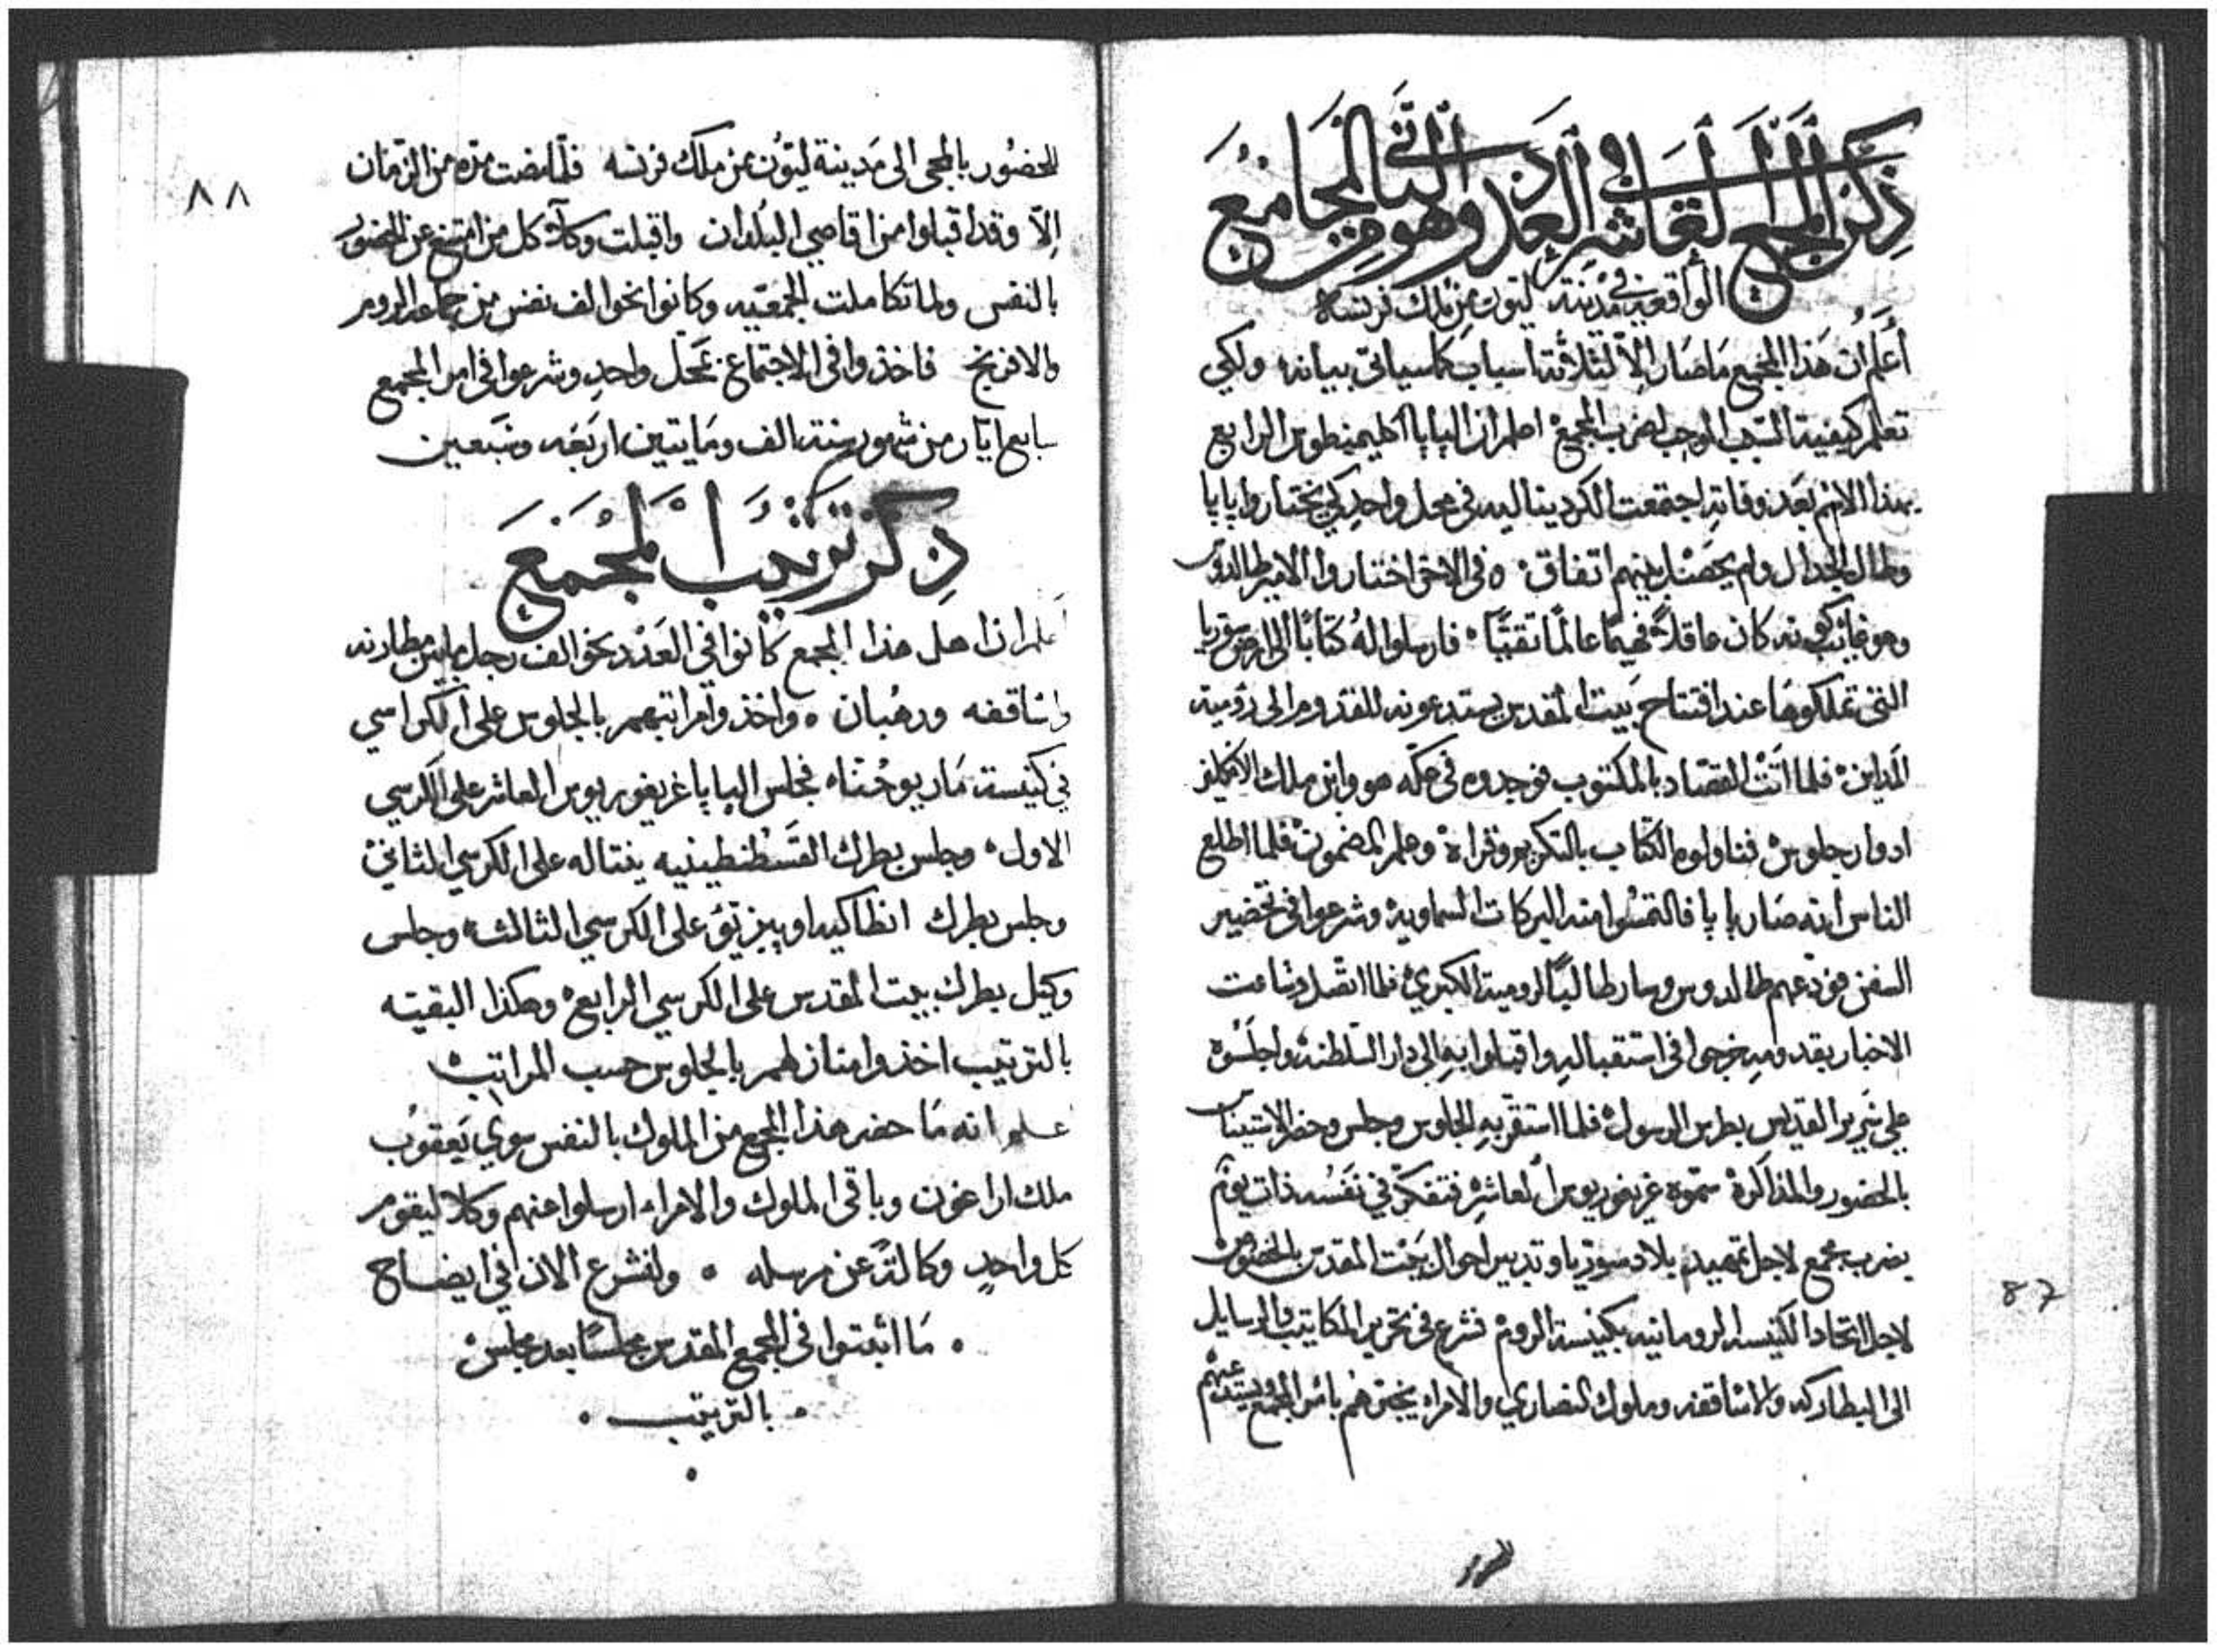 ذكر المجمع العاشر في العدد وهو من المجامع
الواقعه في مدينة ليون من ملك فرنساه
أعلم ان هذا المجمع ما صار الا لثلاثة اسباب كما سياتي بيانه ولكي
تعلم كيفية السبب الموجب لضرب المجمع اعلم ان البابا اكليمنطوس الرابع
بهذا الاسم بعد وفاته اجتمعت الكرديناليه في محل واحد كي يختاروا بابا
وطال الجدال ولم يحصل بينهم اتفاق ه في الاخر اختاروا الامير طالدوس
وهو غائب كونه كان عاقلاً فهيماً عالماً تقيّاً فارسلوا له كتاباً الى ارض سوريا
التي تملكوها عند افتتاح بيت المقدس يستدعونه للقدوم الى رومية
المداين فلما اتت القصاد بالمكتوب فوجدوه في عكه هو وابن ملك الانكليز
ادوار جلوس فناولوه الكتاب بالتكريم وقراه وعلم المضمون فلما اطلع
الناس أنه صار بابا فالتمسوا منه البركات السماوية وشرعوا في تحضير
السفن فودعهم طالدوس وسار طالباً لرومية الكبرى فلما اتصل وشاعت
الاخبار بقدومه خرجوا في استقباليه واقبلوا به الى دار السلطنة واجلسوه
على سرير القديس بطرس الرسول فلما استقر به الجلوس وجلس وحضر
بالحضور والمذاكرة سموه غريغوريوس العاشر فتفكر في نفسه ذات يوم
بضرب مجمع لاجل تمهيد بلاد سوريا وتدبير احوال بيت المقدس بالخصوص
لاجل اتحاد الكنيسه الرومانيه بكنيسة الروم فشرع في تحرير المكاتيب والرسايل
الى البطاركه والاساقفه وملوك النصارى والامراء يخبرهم بامر المجمع ويستدعيهم
87
للحضور بالمجى الى مدينة ليون من ملك فرنسه فلما مضت مده من الزمان
الا وقد اقبلوا من اقاصي البلدان واقبلت وكلاء كل من امتنع عن الحضور
بالنفس ولما تكاملت الجمعيه وكانوا نحو الف نفس من جماعة الروم
والافرنج فاخذوا في الاجتماع بمحل واحد وشرعوا في امر المجمع
سابع ايار من شهور سنة الف ومايتين اربعه وسبعين
ذكر ترتيب المجمع
اعلم ان اهل هذا المجمع كانوا في العدد نحو الف رجل ما بين مطارنه
واساقفه ورهبان ه واخذوا مراتبهم بالجلوس على الكراسي
في كنيسة مار يوحناه فجلس البابا غريغوريوس العاشر على الكرسي
الاول ه وجلس بطرك القسطنطينيه ينتاله على الكرسي الثاني
وجلس بطرك انطاكيه على الكرسي الثالث وجلس
وكيل بطرك بيت المقدس على الكرسي الرابع وهكذا البقيته
بالترتيب اخذوا منازلهم بالجلوس حسب المراتب
اعلم انه ما حضر هذا المجمع من الملوك بالنفس سوى يعقوب
ملك اراغون وباقي الملوك والامراء ارسلوا عنهم وكلا ليقوم
كل واحد وكالةً عن مرسله ه ولنشرع الان في ايضاح
ما اثبتوا في المجمع المقدس مجلساً بعد مجلس
بالترتيب
٨٨